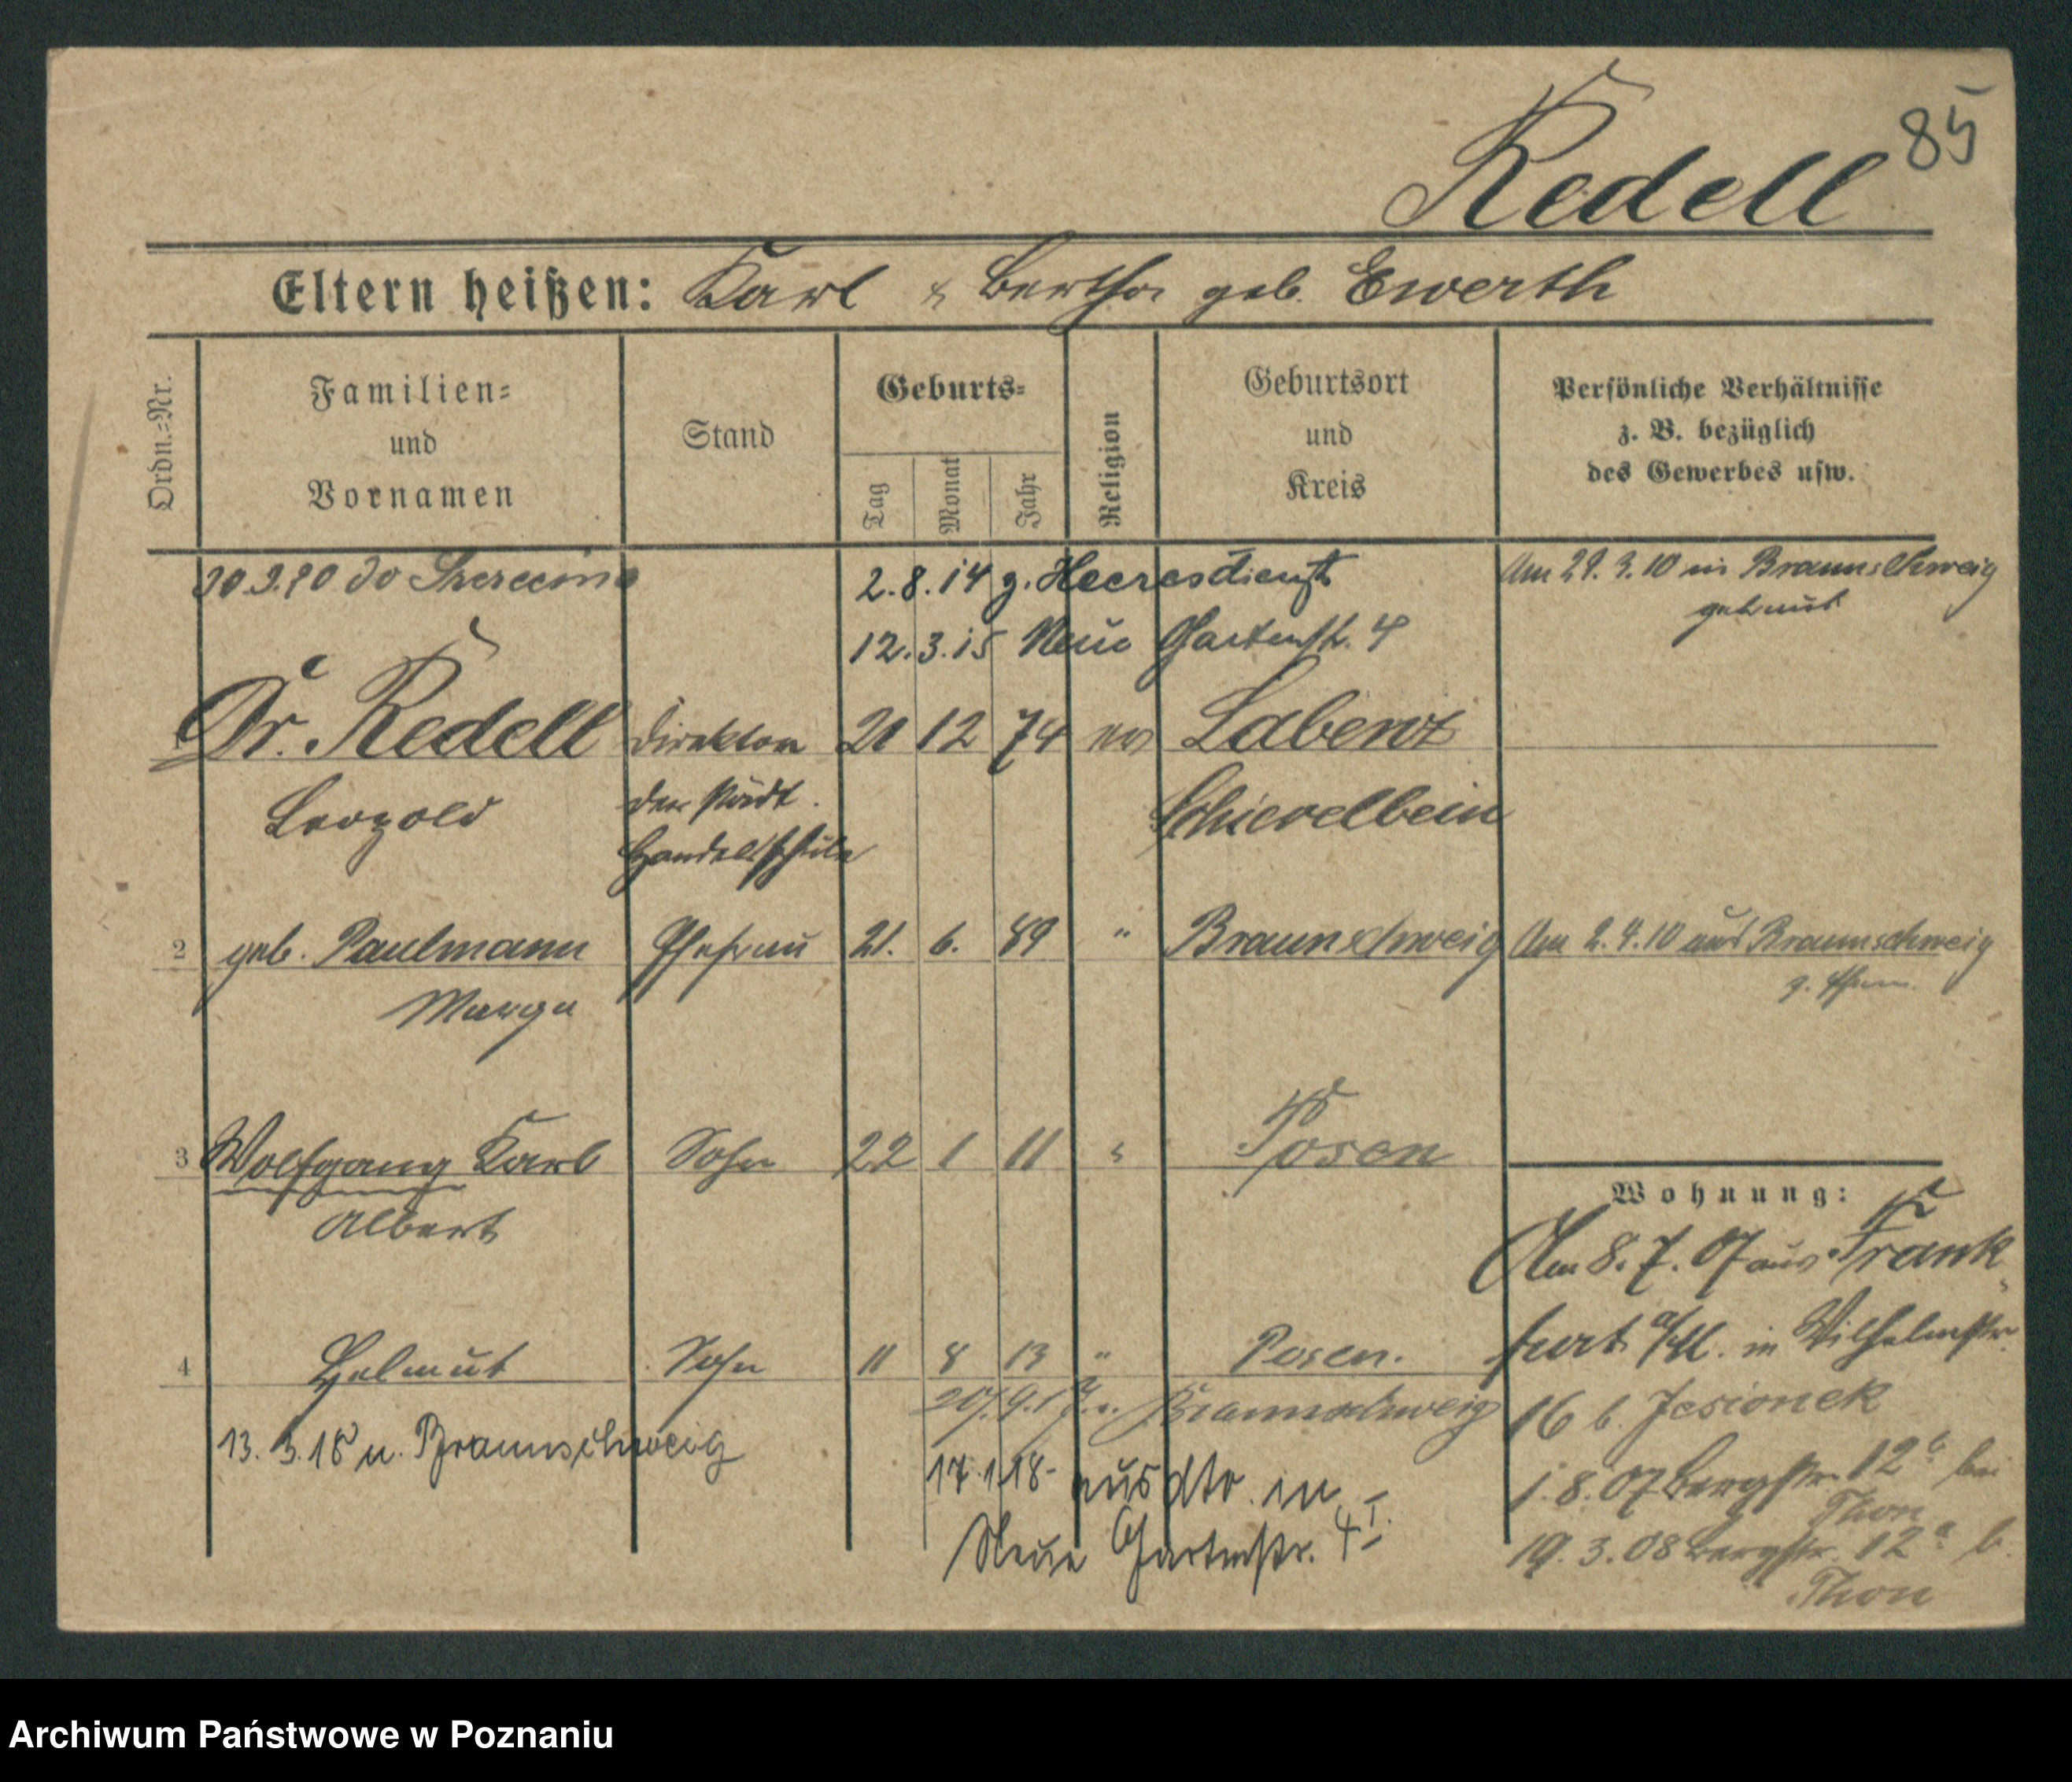 85
Redell
Eltern heißen: Karl & Bertha geb. Ewerth
Ordn.=Nr.
Familien=
und
Vornamen
Stand
Geburts=
Tag
Monat
Jahr
Religion
Geburtsort
und
Kreis
Persönliche Verhältnisse
z. B. bezüglich
des Gewerbes usw.
do
2.8.14 z. Heeresdienst
Am 29.3.10 in Braunschweig
getraut
12.3.15 Neue Gartenstr. 4
1 Dr. Redell Direktor 21 12 74 Labenz
Leopold der städt. Schievelbein
Handelsschule
2 geb. Paulmann Ehefrau 21. 6. 89 " Braunschweig Am 2.4.10 aus Braunschweig
z. Ehem.
Marga
3 Wolfgang Karl Sohn 22 1 11 " Posen
Albert
Wohnung:
Am 8.7.07 aus Frank-
furt a/M. in Wilhelmstr.
16 b. Jesionek
1.8.07 Bergstr. 12b bei
Thon
19.3.08 Bergstr. 12a b.
Thon
4 Helmut Sohn 11 8 13 " Posen.
Braunschweig
13.3.18 n. Braunschweig
17.1.18 aus dto. in
Neue Gartenstr. 4 I.
Archiwum Państwowe w Poznaniu